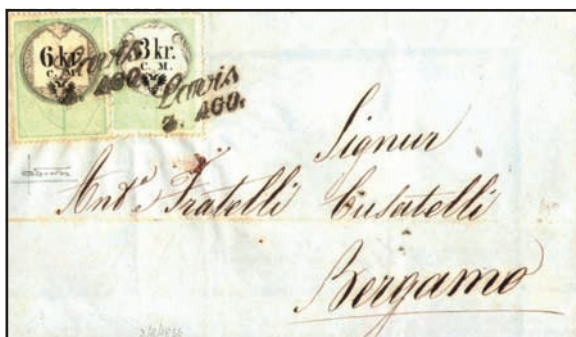 6 kr.
C. M.
3 kr.
C. M.
Lavis
3. AGO.
Lavis
3. AGO.
Signur
Antº Fratelli Cusatelli
Bergamo